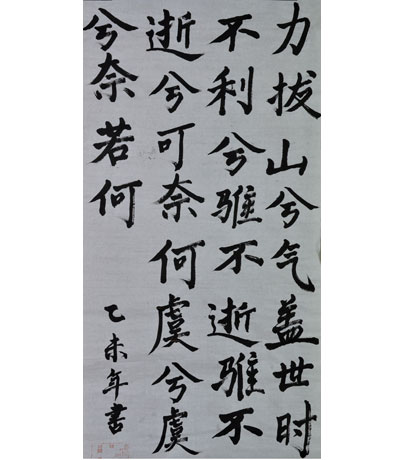 力拔山兮气盖世时
不利兮骓不逝骓不
逝兮可奈何虞兮虞
兮奈若何
乙未年书